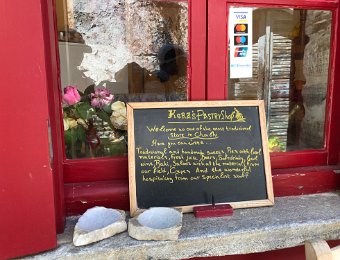 VISA
KERA'S PASTRY SHOP
Welcome to one of the most traditional
store in Chora
Here you can find..
Traditional and handmade sweets, Pies with local
materials, Fresh juice, Beers, Local
wine, Raki, Salads with all the materials from
our Farm, Cafes And the wonderful
hospitality from our Specialist staff